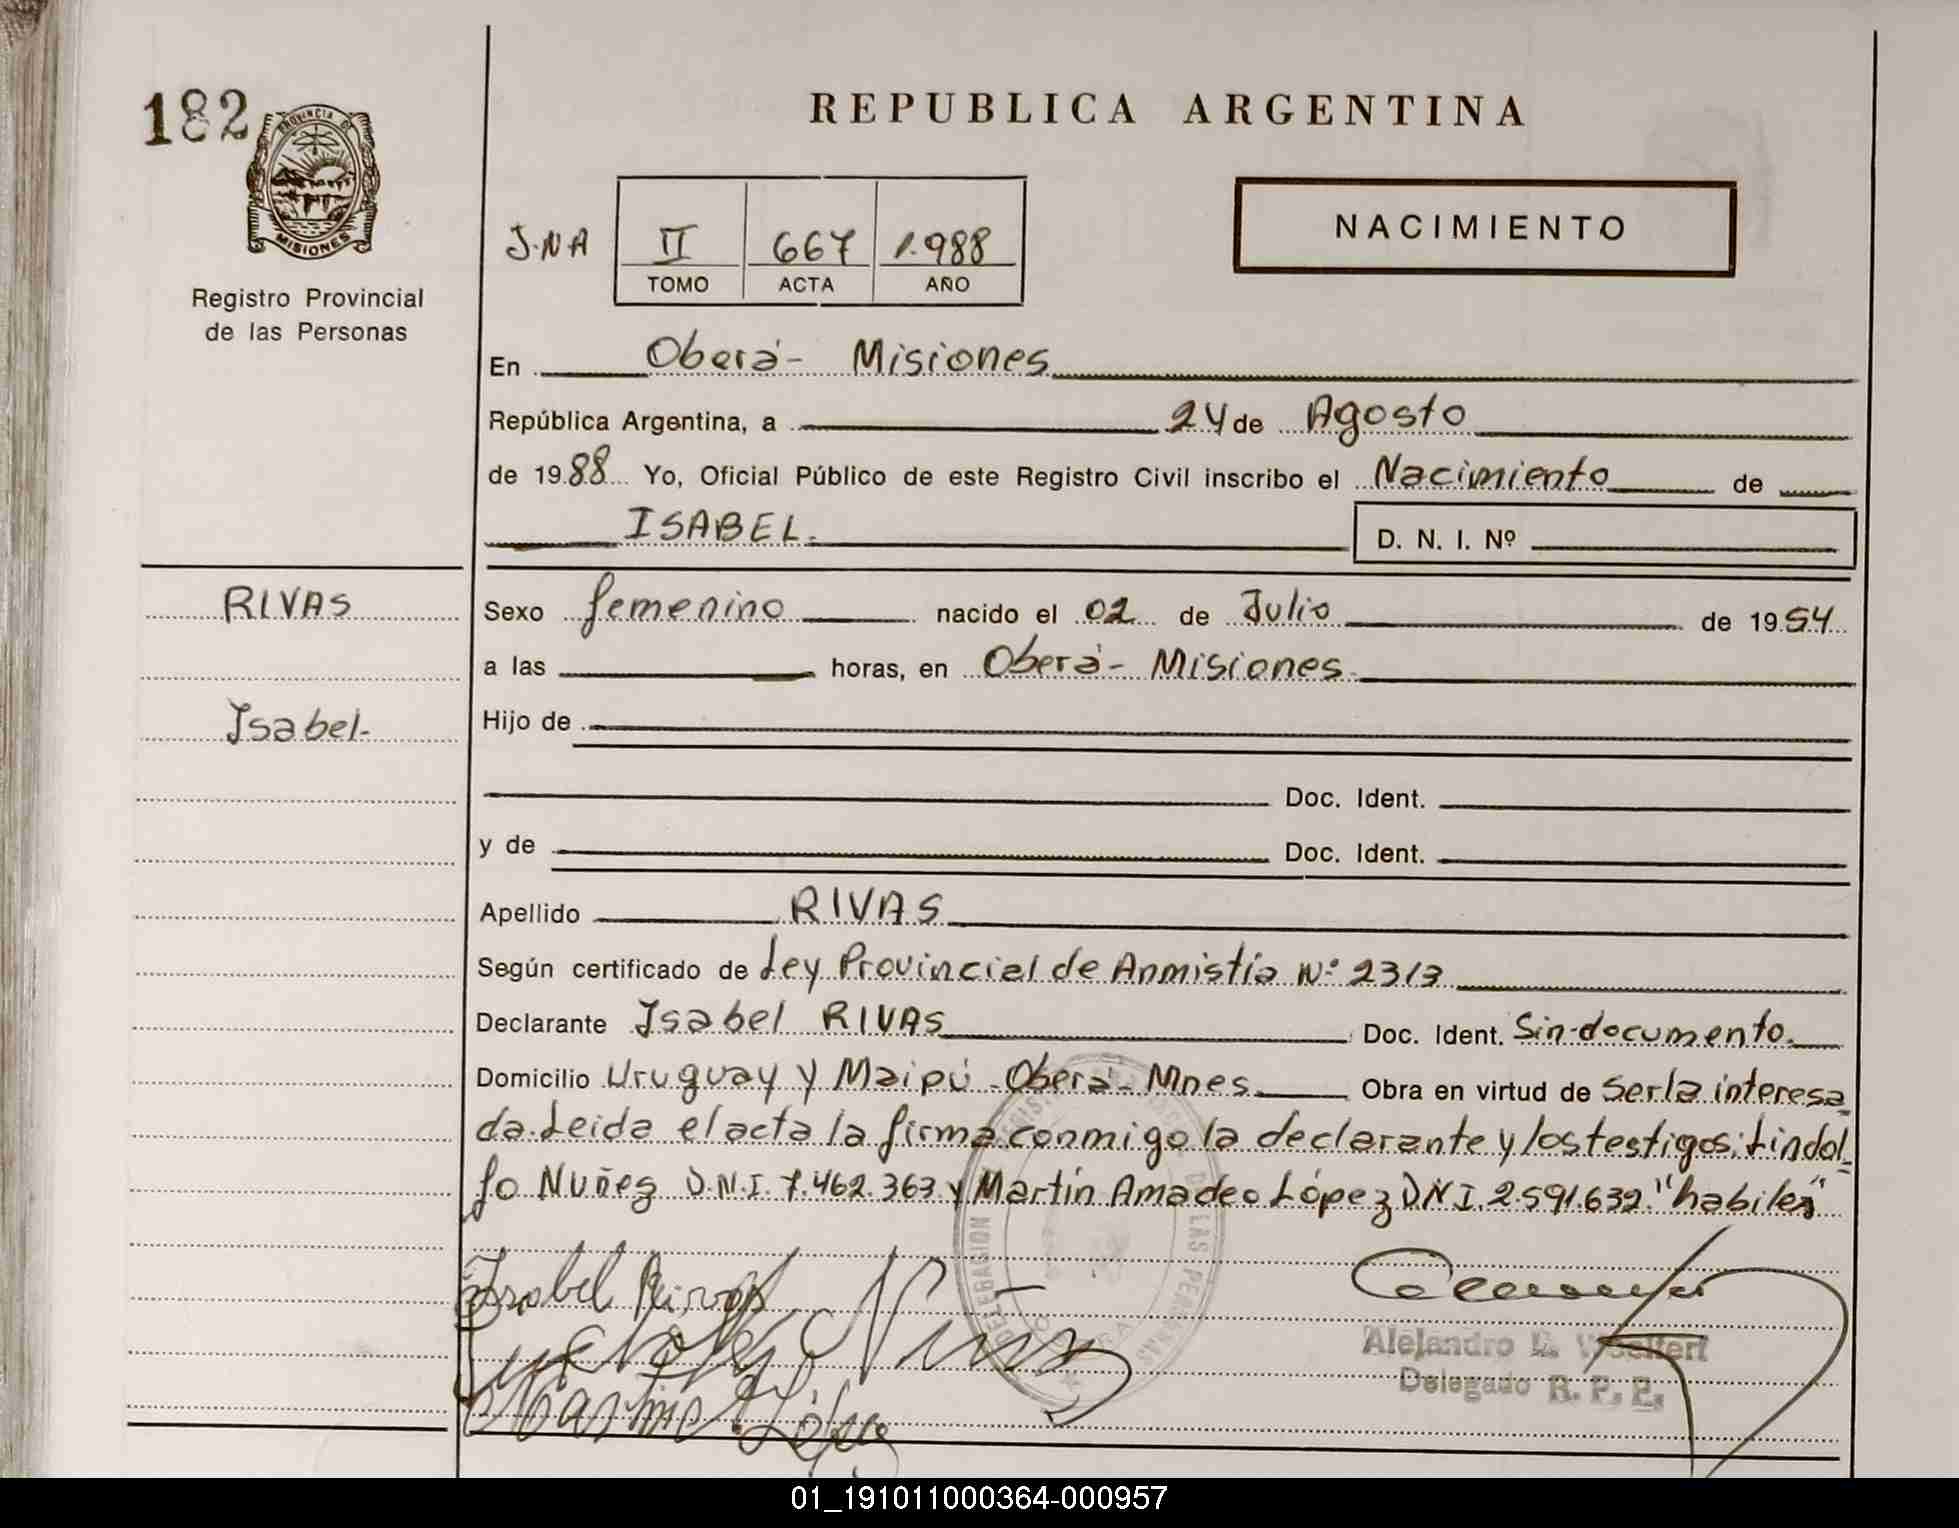 182
PROVINCIA DE
MISIONES
Registro Provincial
de las Personas
REPUBLICA ARGENTINA
J.NA II 667 1.988
TOMO ACTA AÑO
NACIMIENTO
En Oberá- Misiones
República Argentina, a 24 de Agosto
de 1988 Yo, Oficial Público de este Registro Civil inscribo el Nacimiento de
ISABEL.
D. N. I. Nº
RIVAS
Isabel-
Sexo femenino nacido el 02 de Julio de 1954
a las horas, en Oberá- Misiones.
Hijo de
Doc. Ident.
y de Doc. Ident.
Apellido RIVAS
Según certificado de Ley Provincial de Anmistía Nº 2313
Declarante Isabel RIVAS Doc. Ident. Sin-documento.
Domicilio Uruguay y Maipú -Oberá- Mnes. Obra en virtud de Ser la interesa
da. Leida el acta la firma conmigo la declarante y los testigos: Lindol
fo Nuñez D.N.I. 7.462.363 y Martín Amadeo López D.N.I. 2.591.632. "habiles"
DELEGACION REGISTRO DE LAS PERSONAS
Isabel Rivas
Martin A. López
Alejandro
Delegado R. P. P.
01_191011000364-000957